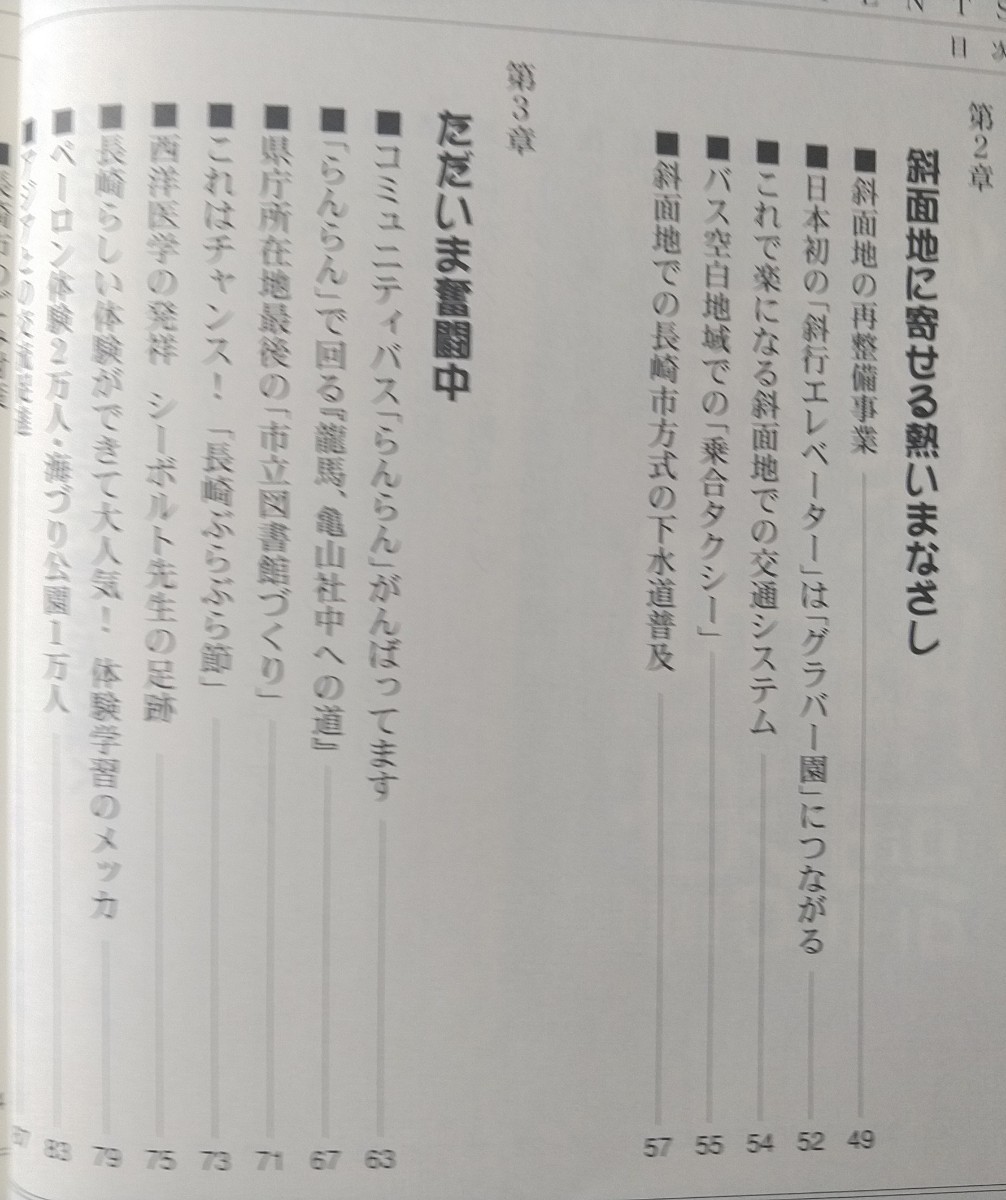 目次
第2章
斜面地に寄せる熱いまなざし
■斜面地の再整備事業 49
■日本初の「斜行エレベーター」は「グラバー園」につながる 52
■これで楽になる斜面地での交通システム 54
■バス空白地域での「乗合タクシー」 55
■斜面地での長崎市方式の下水道普及 57
第3章
ただいま奮闘中
■コミュニティバス「らんらん」がんばってます 63
■「らんらん」で回る『龍馬、亀山社中への道』 67
■県庁所在地最後の「市立図書館づくり」 71
■これはチャンス！「長崎ぶらぶら節」 73
■西洋医学の発祥 シーボルト先生の足跡 75
■長崎らしい体験ができて大人気！ 体験学習のメッカ 79
■ペーロン体験2万人・海づり公園1万人 83